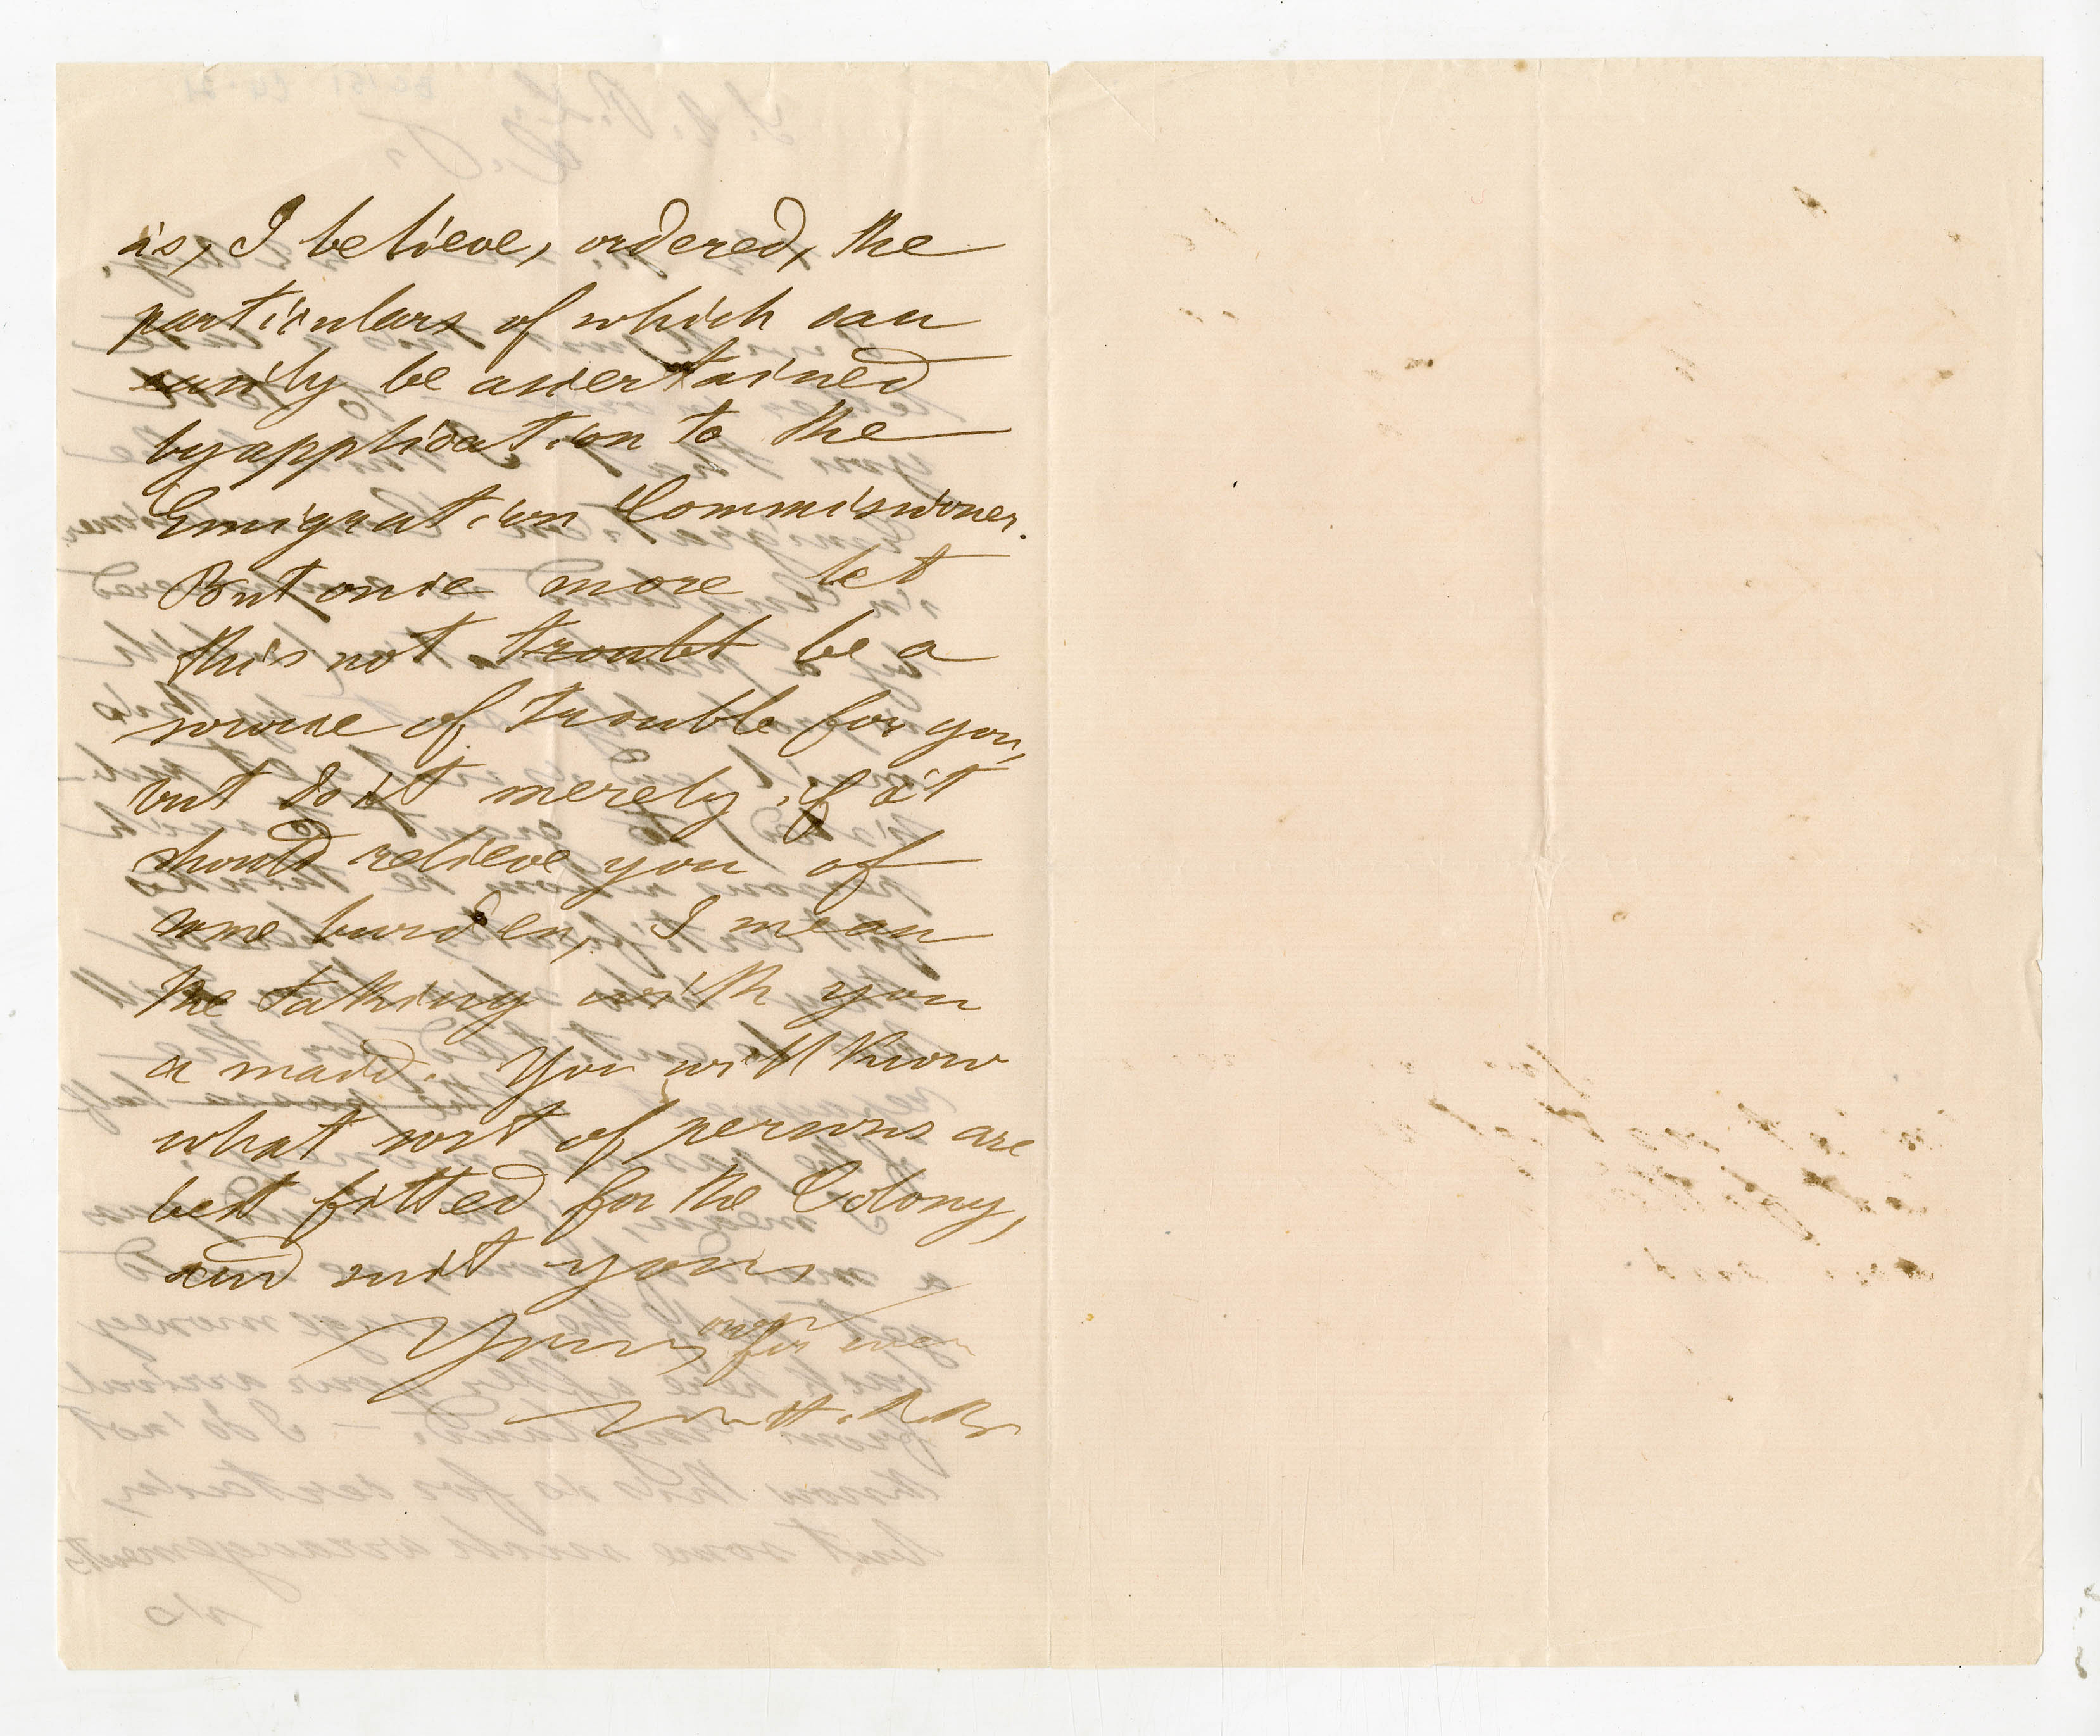 is, I believe, ordered, the
particulars of which can
easily be ascertained
by application to the
Emigration Commissioner.
But once more let
this not troubl be a
source of trouble for you,
but do it merely if it
should relieve you of
some burden, I mean
the taking with you
a maid. You will know
what sort of persons are
best fitted for the Colony,
and suit you
Yours for ever
own
W. H. I. B.